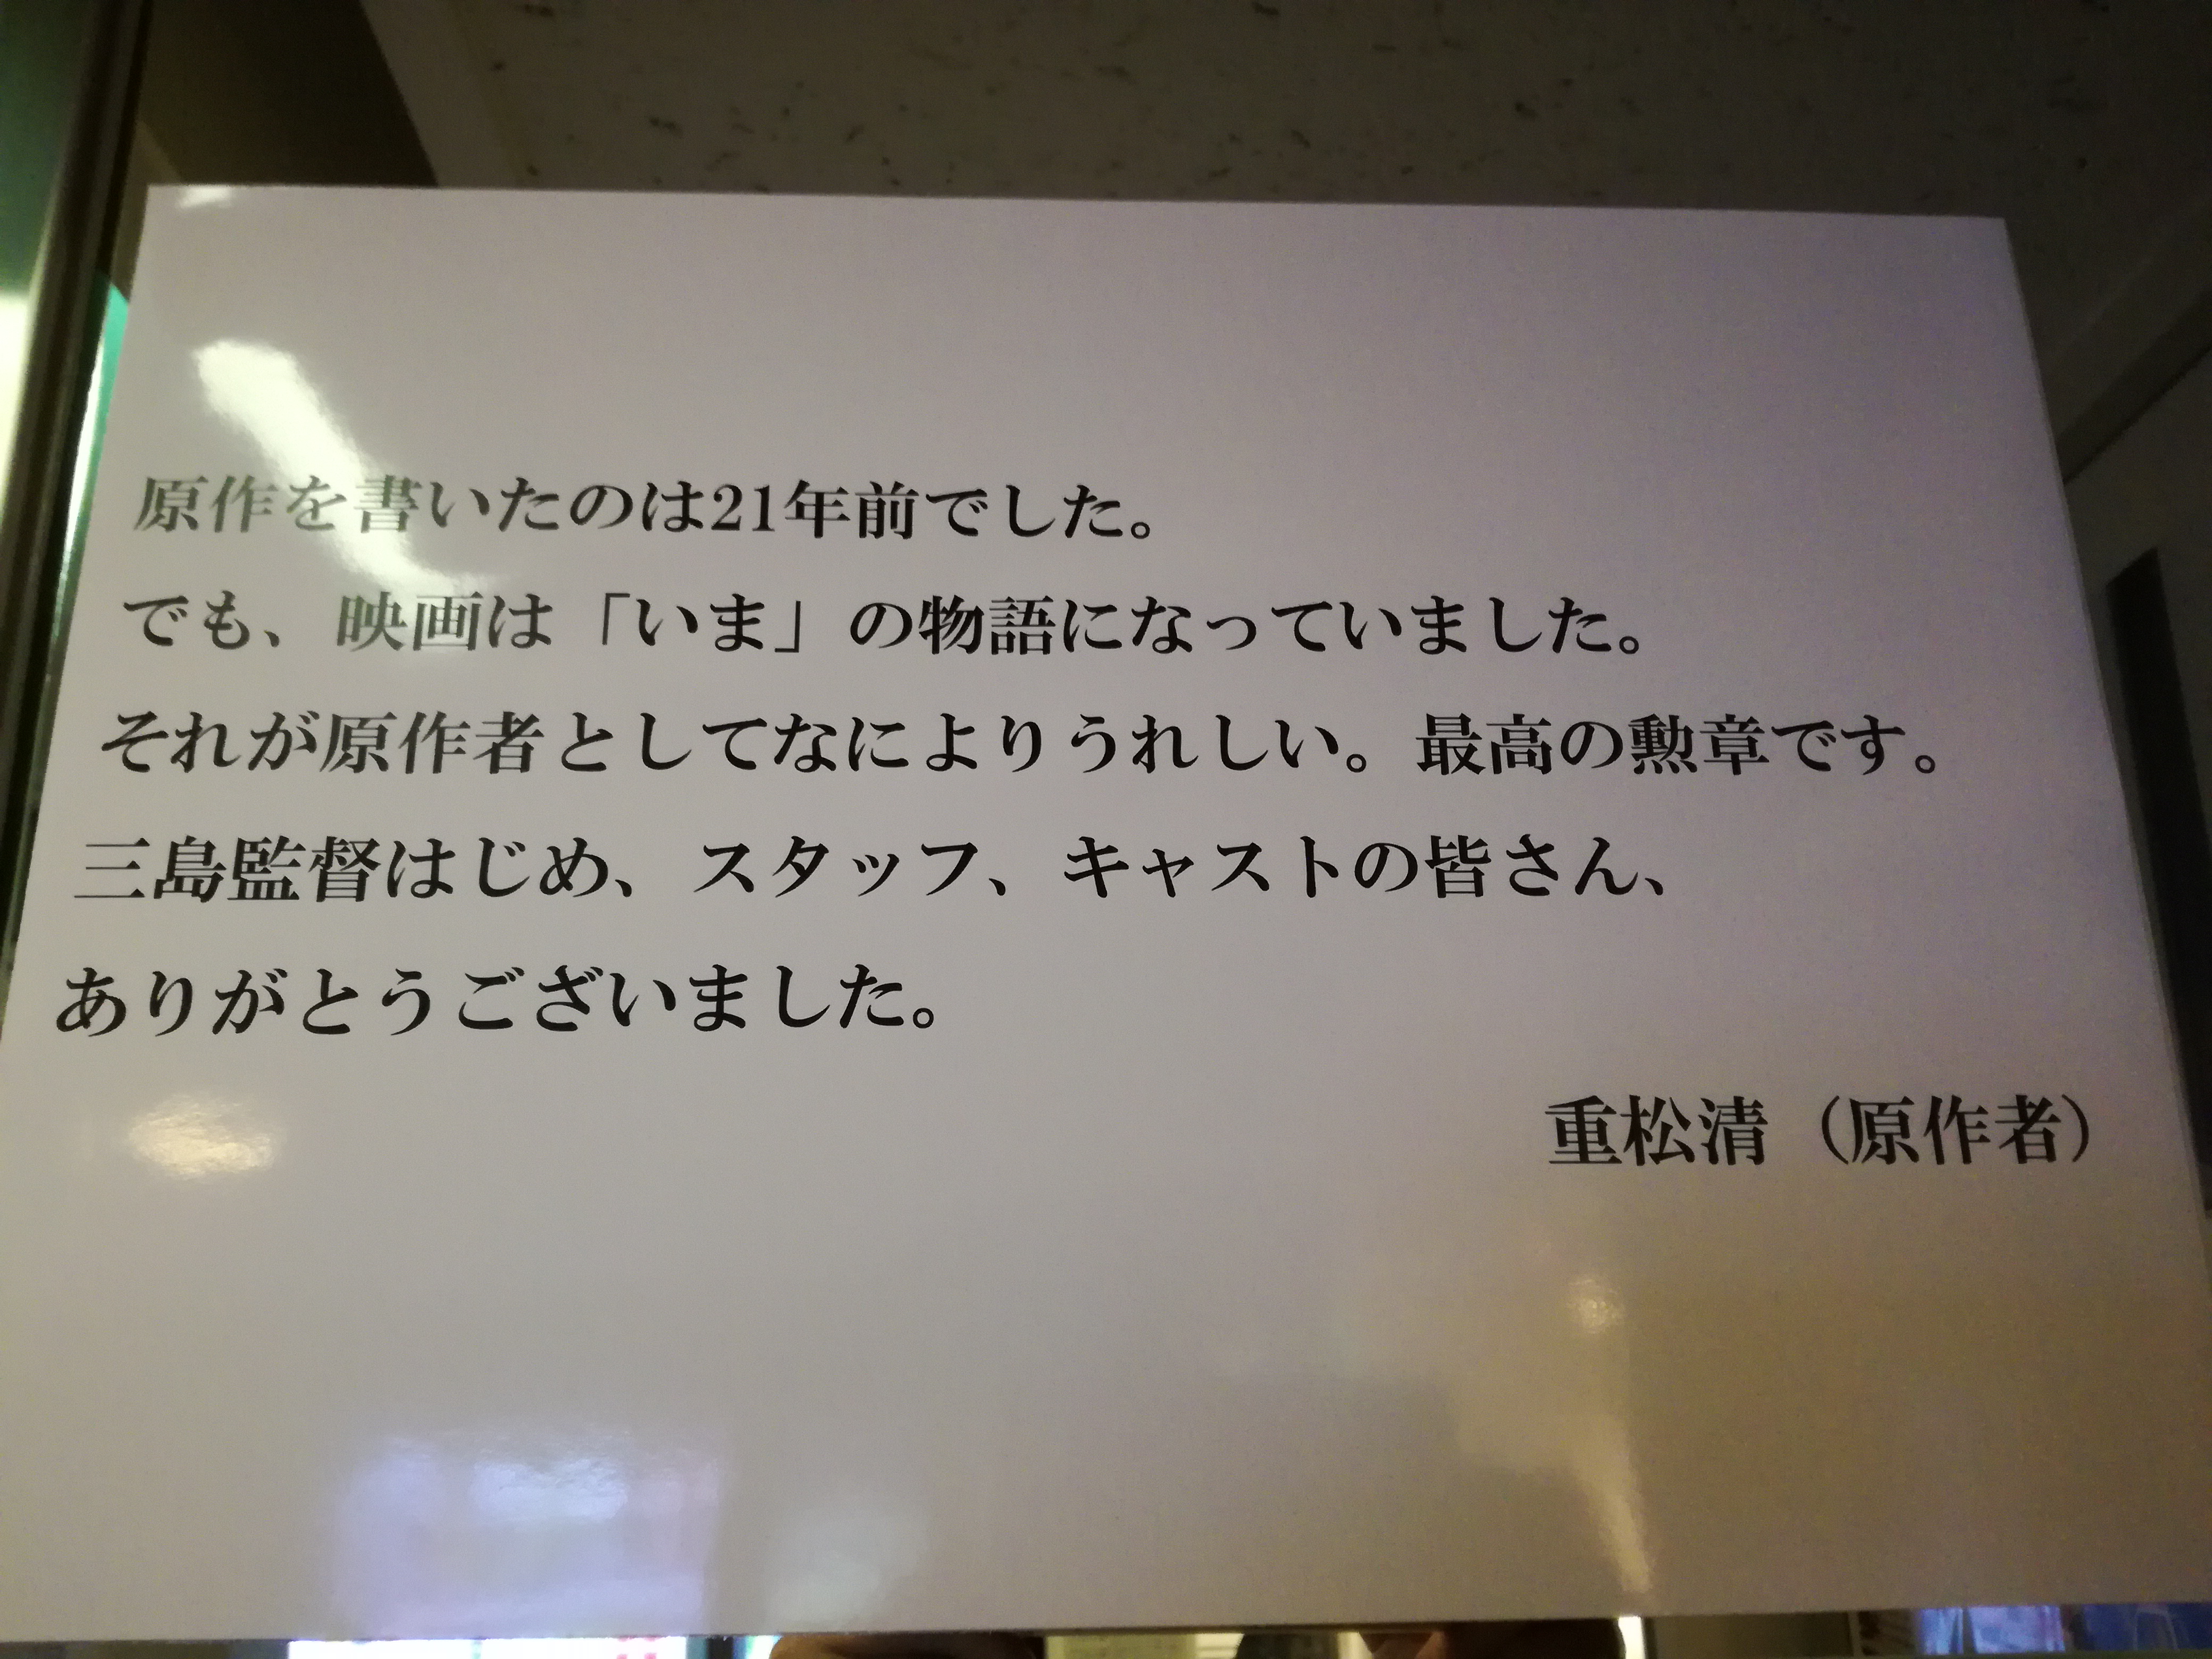 原作を書いたのは21年前でした。
でも、映画は「いま」の物語になっていました。
それが原作者としてなによりうれしい。最高の勲章です。
三島監督はじめ、スタッフ、キャストの皆さん、
ありがとうございました。
重松清（原作者）